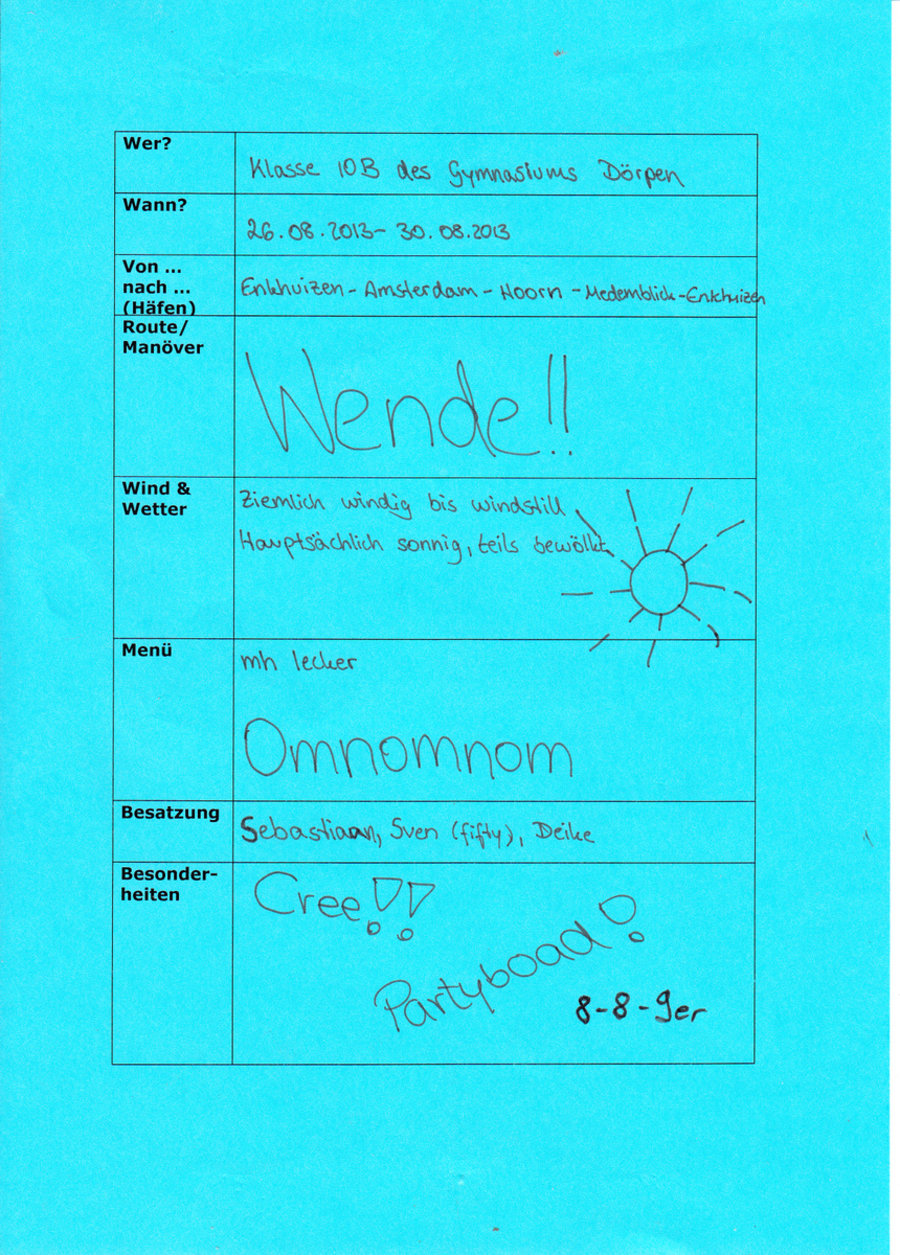 Wer?
Klasse 10B des Gymnasiums Dörpen
Wann?
26.08.2013- 30.08.2013
Von ...
nach ...
(Häfen)
Enkhuizen - Amsterdam - Hoorn - Medemblick - Enkhuizen
Route/
Manöver
Wende!!
Wind &
Wetter
Ziemlich windig bis windstill,
Hauptsächlich sonnig, teils bewölkt
Menü
mh lecker
Omnomnom
Besatzung
Sebastiaan, Sven (fifty), Deike
Besonder-
heiten
Cree!!
Partyboad!
8-8-9er